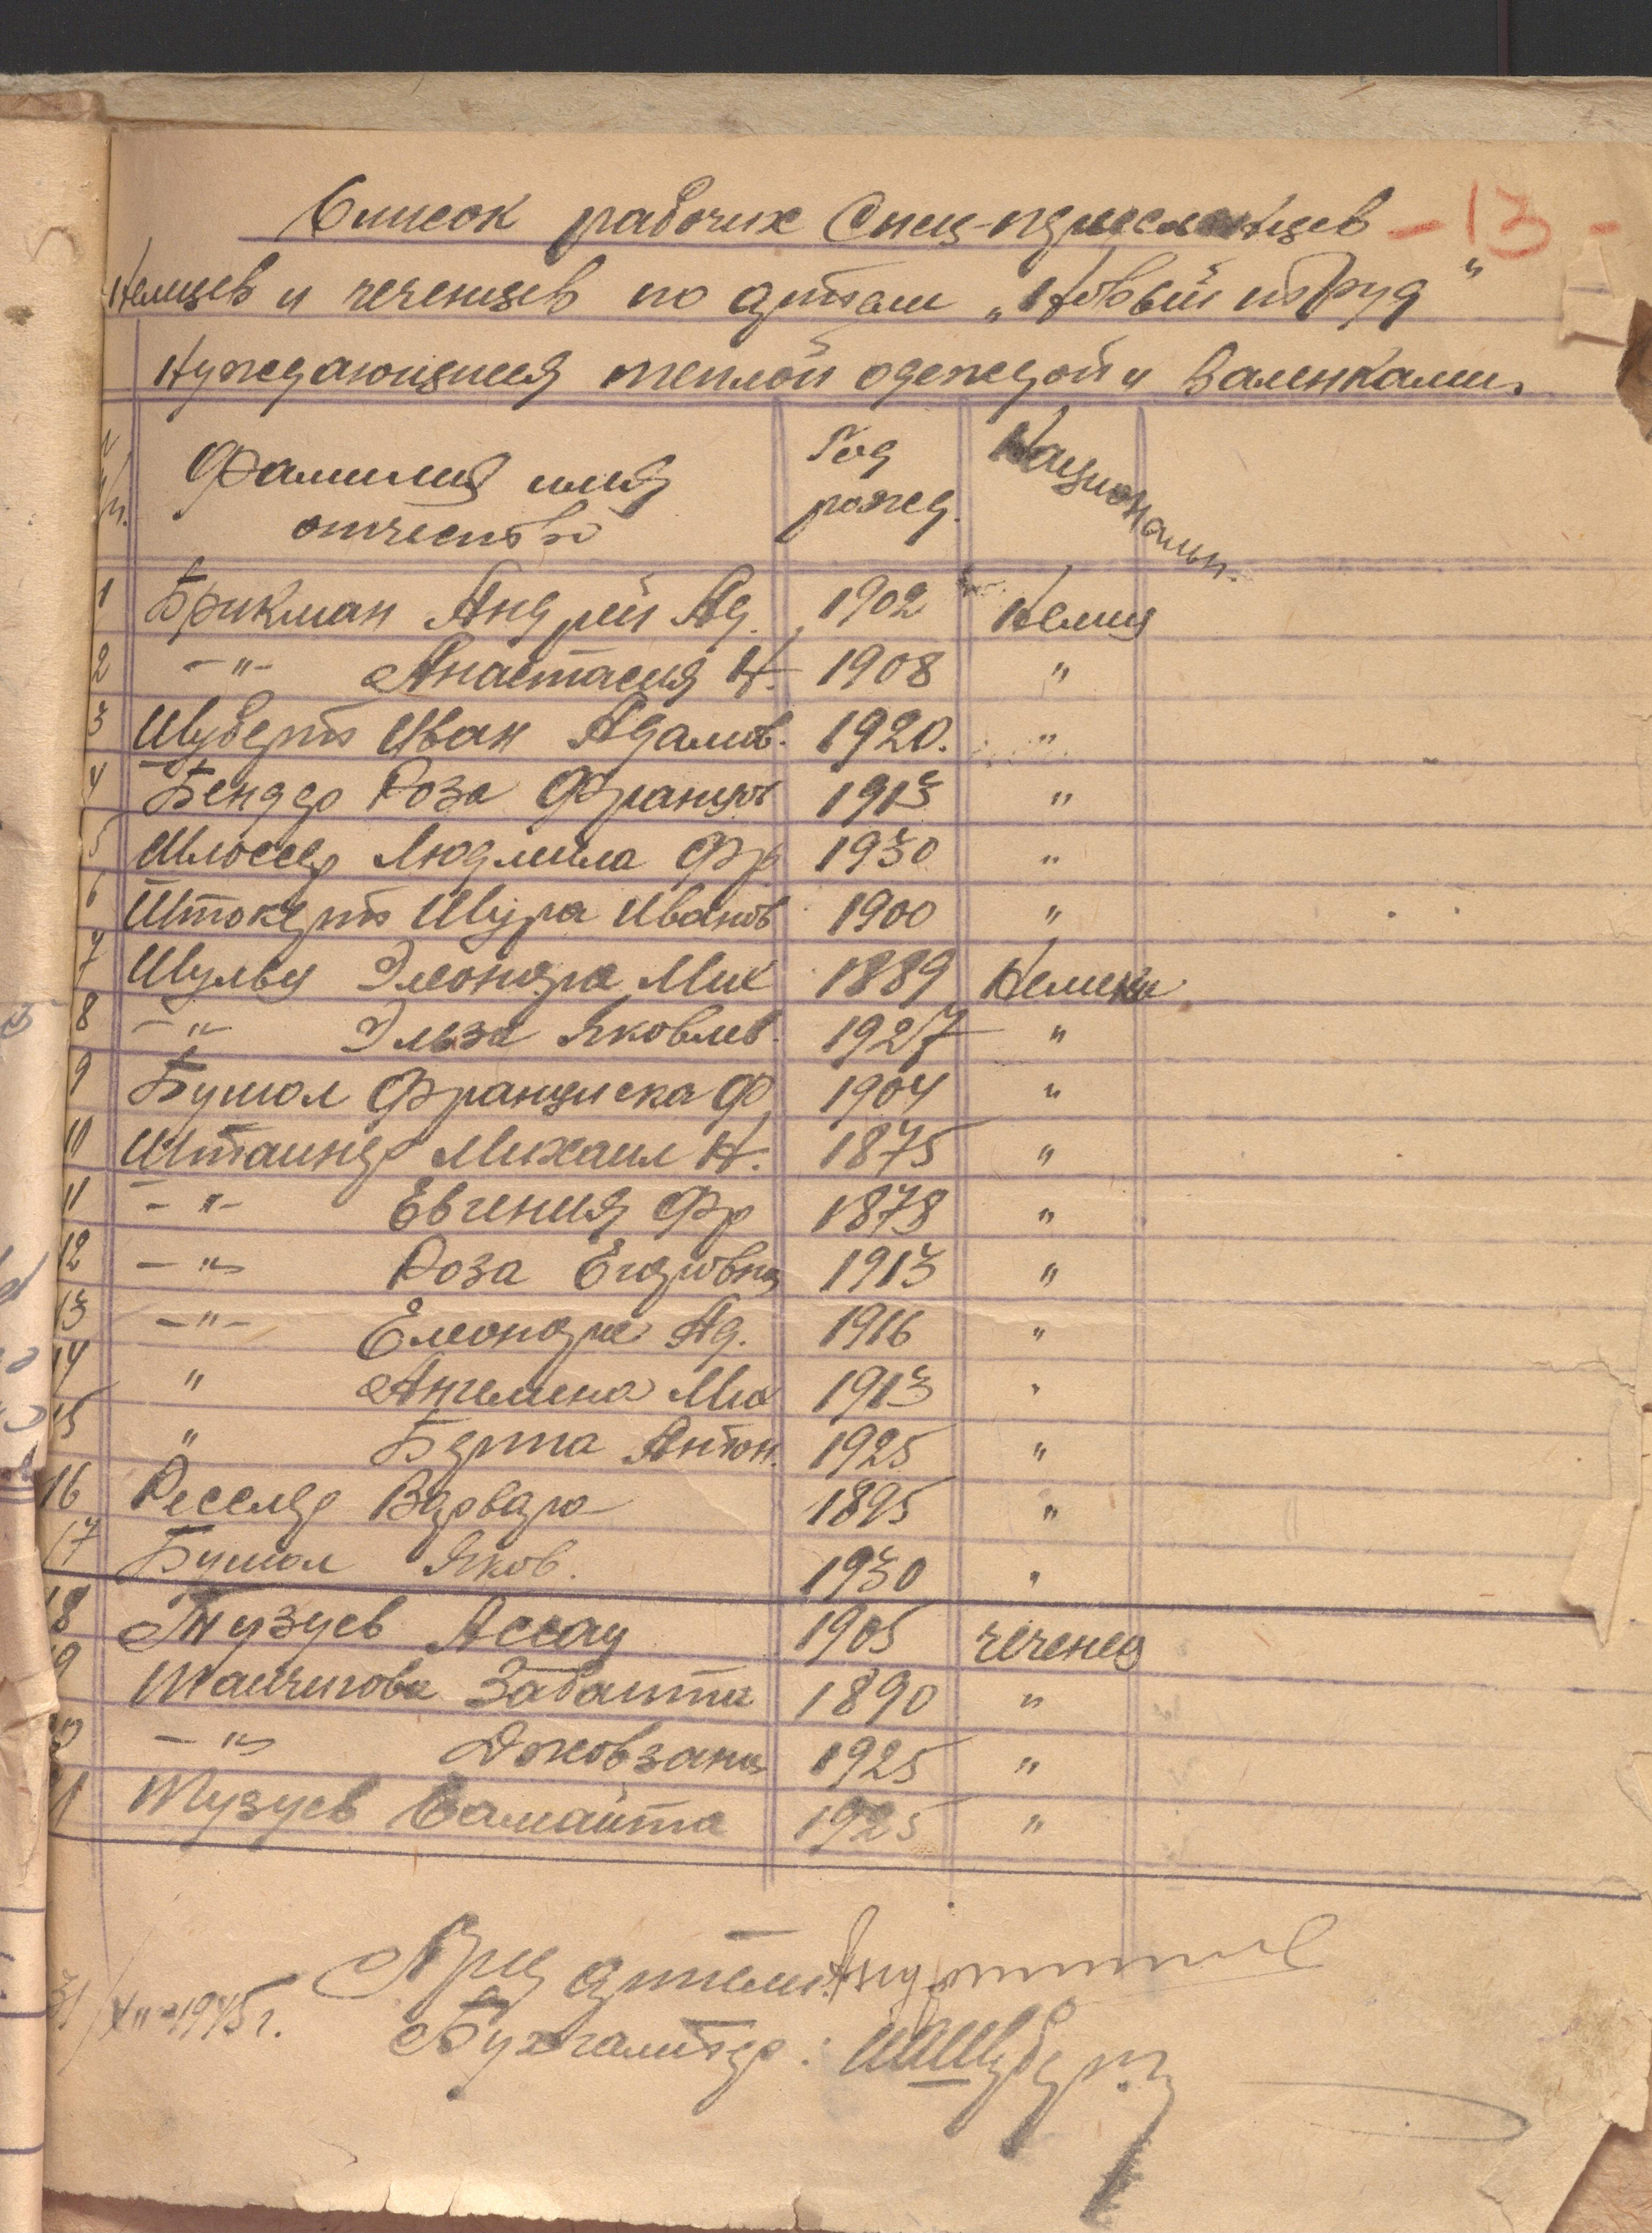 Список рабочих Спец-переселенцев -13-
Немцев и чеченцев по артели „Новый Труд"
Нуждающиеся теплой одеждой и валенками.
Фамилия имя Год Национальн.
отчество рожд.
1 Брикман Андрей Ад. 1902 Немец
2 -"- Анастасия Н. 1908 "
3 Шуберт Иван Адамов. 1920. "
4 Бендер Роза Францов 1913 "
5 Шлоссер Людмила Фр 1930 "
6 Штокерт Шура Иванов 1900 "
7 Шульц Элеонора Мих 1889 Немцы
8 -"- Эльза Яковлев. 1927 "
9 Бушол Франциска Ф 1904 "
10 Штаингер Михаил Н. 1875 "
11 -"- Евгения Фр 1878 "
12 -"- Роза Егоровна 1913 "
13 -"- Елеонора Ад. 1916 "
14 " Ангелина Мих 1913 "
15 " Берта Антон. 1925 "
16 Ресслер Варвара 1895 "
17 Бушол Яков. 1930 "
18 Тузуев Ассау 1905 чеченец
19 Тайчигова Забаита 1890 "
20 -"- Довзана 1925 "
21 Тузуев Самаита 1925 "
Пред артели:
31/XII-1945 г.
Бухгалтер: Шуберт